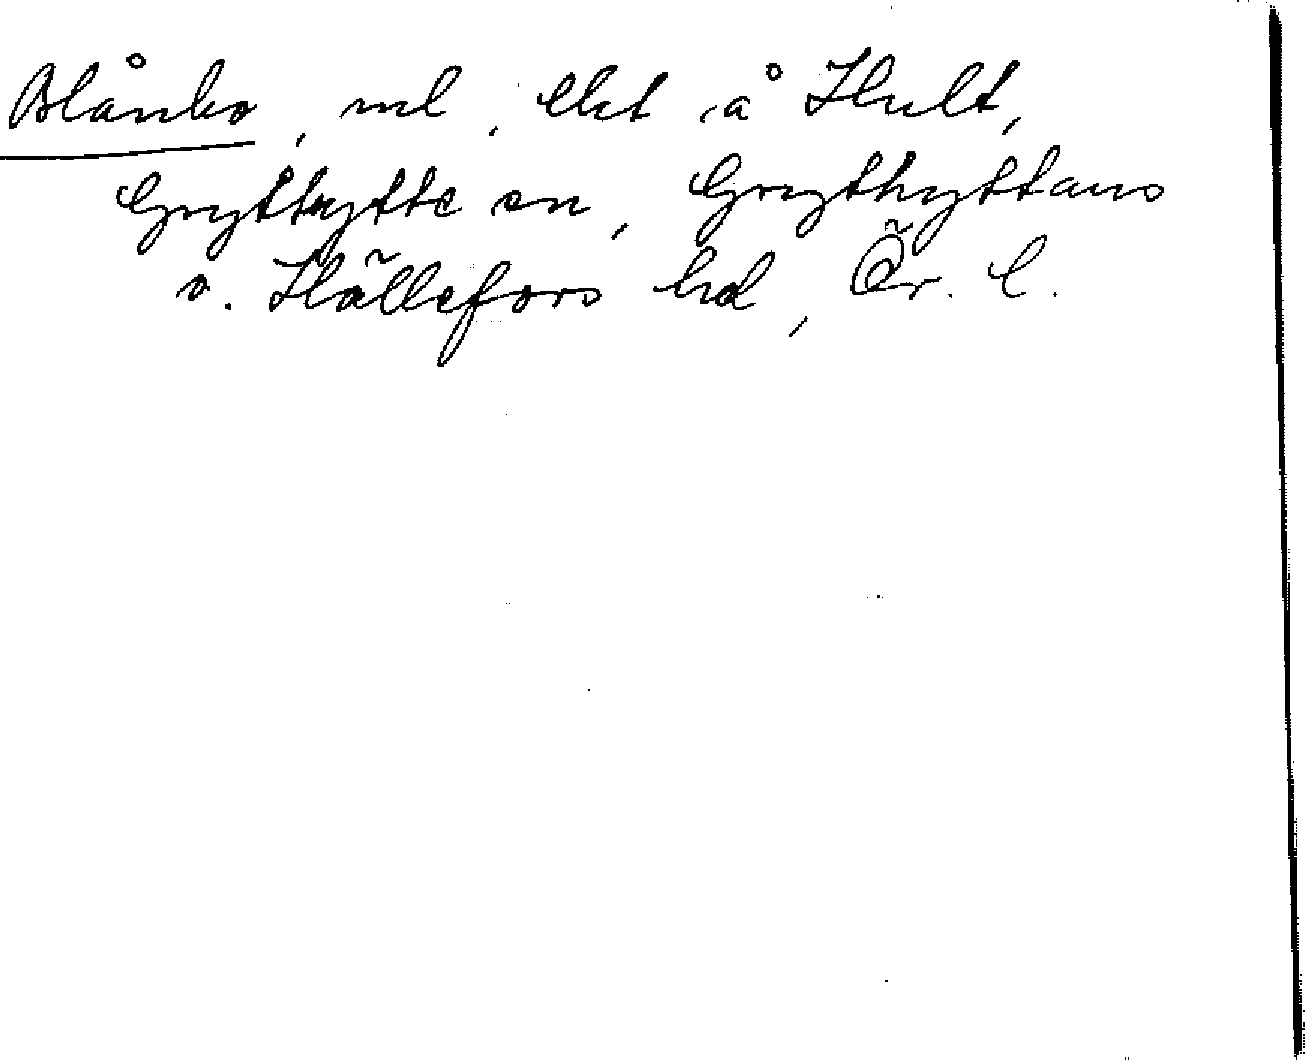 Blånbo, ml, ekt å Hult,
Grythytte sn, Grythyttans
o. Hällefors hd, Ör. l.